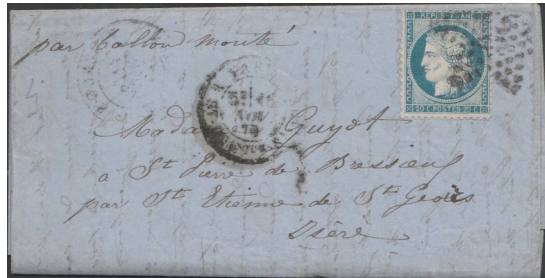 par Ballon monté
REPUB. FRANC.
20 C POSTES 20 C
PARIS
NOV
70
Madame Guyot
à St Pierre de Bressieux
par St Etienne de St Geoirs
Isère